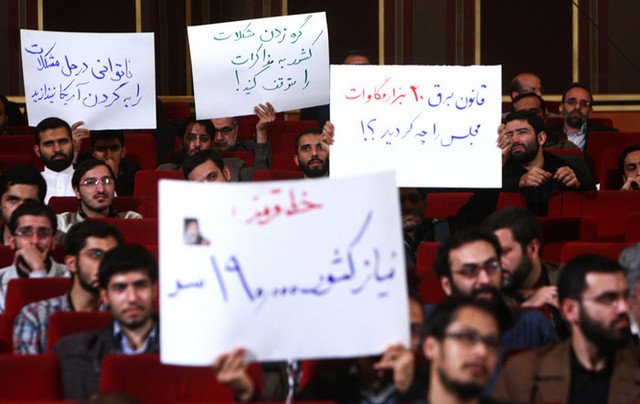 ناتوانی در حل مشکلات
را به گردن آمریکا نندازید
گره زدن مشکلات
کشور به مذاکرات
را متوقف کنید!
قانون برق ۲۰ هزار مگاوات
مجلس را چه کردید؟!
خط قرمز:
نیاز کشور ۱۹۰,۰۰۰ سو